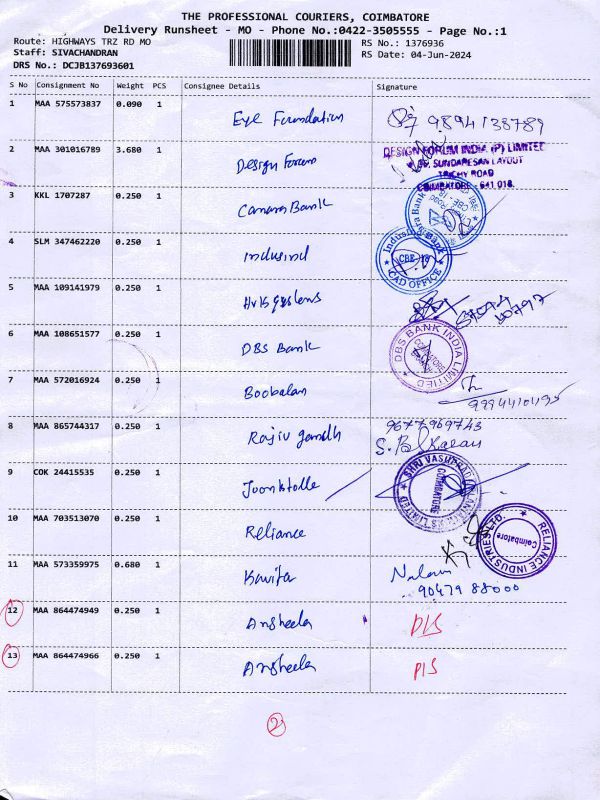 THE PROFESSIONAL COURIERS, COIMBATORE
Delivery Runsheet - MO - Phone No.:0422-3505555 - Page No.:1
Route: HIGHWAYS TRZ RD MO
RS No.: 1376936
Staff: SIVACHANDRAN
RS Date: 04-Jun-2024
DRS No.: DCJB137693601
S No Consignment No Weight PCS Consignee Details Signature
1 MAA 575573837 0.090 1 Eye Foundation 9894138789
2 MAA 301016789 3.680 1 Design Forum
DESIGN FORUM INDIA (P) LIMITED
SUNDARESAN LAYOUT
TRICHY ROAD
COIMBATORE - 641 018.
3 KKL 1707287 0.250 1 Canara Bank
4 SLM 347462220 0.250 1 Indusind
IndusInd Bank
CBE-18
CAD OFFICE
5 MAA 109141979 0.250 1
6 MAA 108651577 0.250 1 DBS Bank
DBS BANK INDIA LIMITED
7 MAA 572016924 0.250 1 Boobalan
8 MAA 865744317 0.250 1 Rajiv gandh 9677969743
9 COK 24415535 0.250 1
COIMBATORE
10 MAA 703513070 0.250 1 Reliance
RELIANCE INDUSTRIES LTD
Coimbatore
11 MAA 573359975 0.680 1 Kavita
90479 88000
12 MAA 864474949 0.250 1 Ansheela
13 MAA 864474966 0.250 1 Ansheela
2